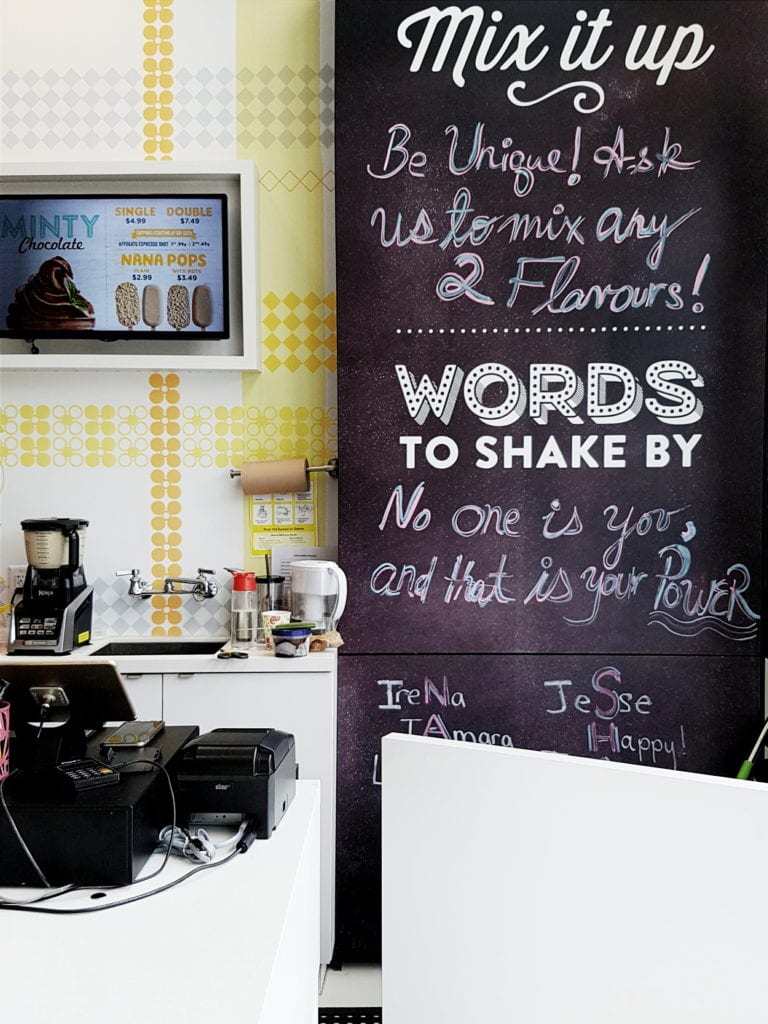 Mix it up
Be Unique! Ask
us to mix any
2 Flavours!
WORDS
TO SHAKE BY
No one is you,
and that is your POWER
IreNa
JeSse
Happy!
MINTY
Chocolate
SINGLE DOUBLE
$4.99 $7.49
NANA POPS
PLAIN WITH NUTS
$2.99 $3.49
NINJA
star